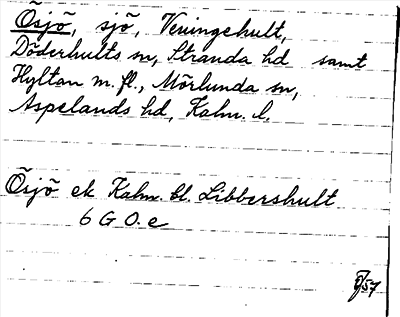 Ösjö, sjö, Veningehult,
Döderhults sn, Stranda hd samt
Hyltan m. fl., Mörlunda sn,
Aspelands hd, Kalm. l.
Ösjö ek Kalm. bl. Libbershult
6 G O. e
57